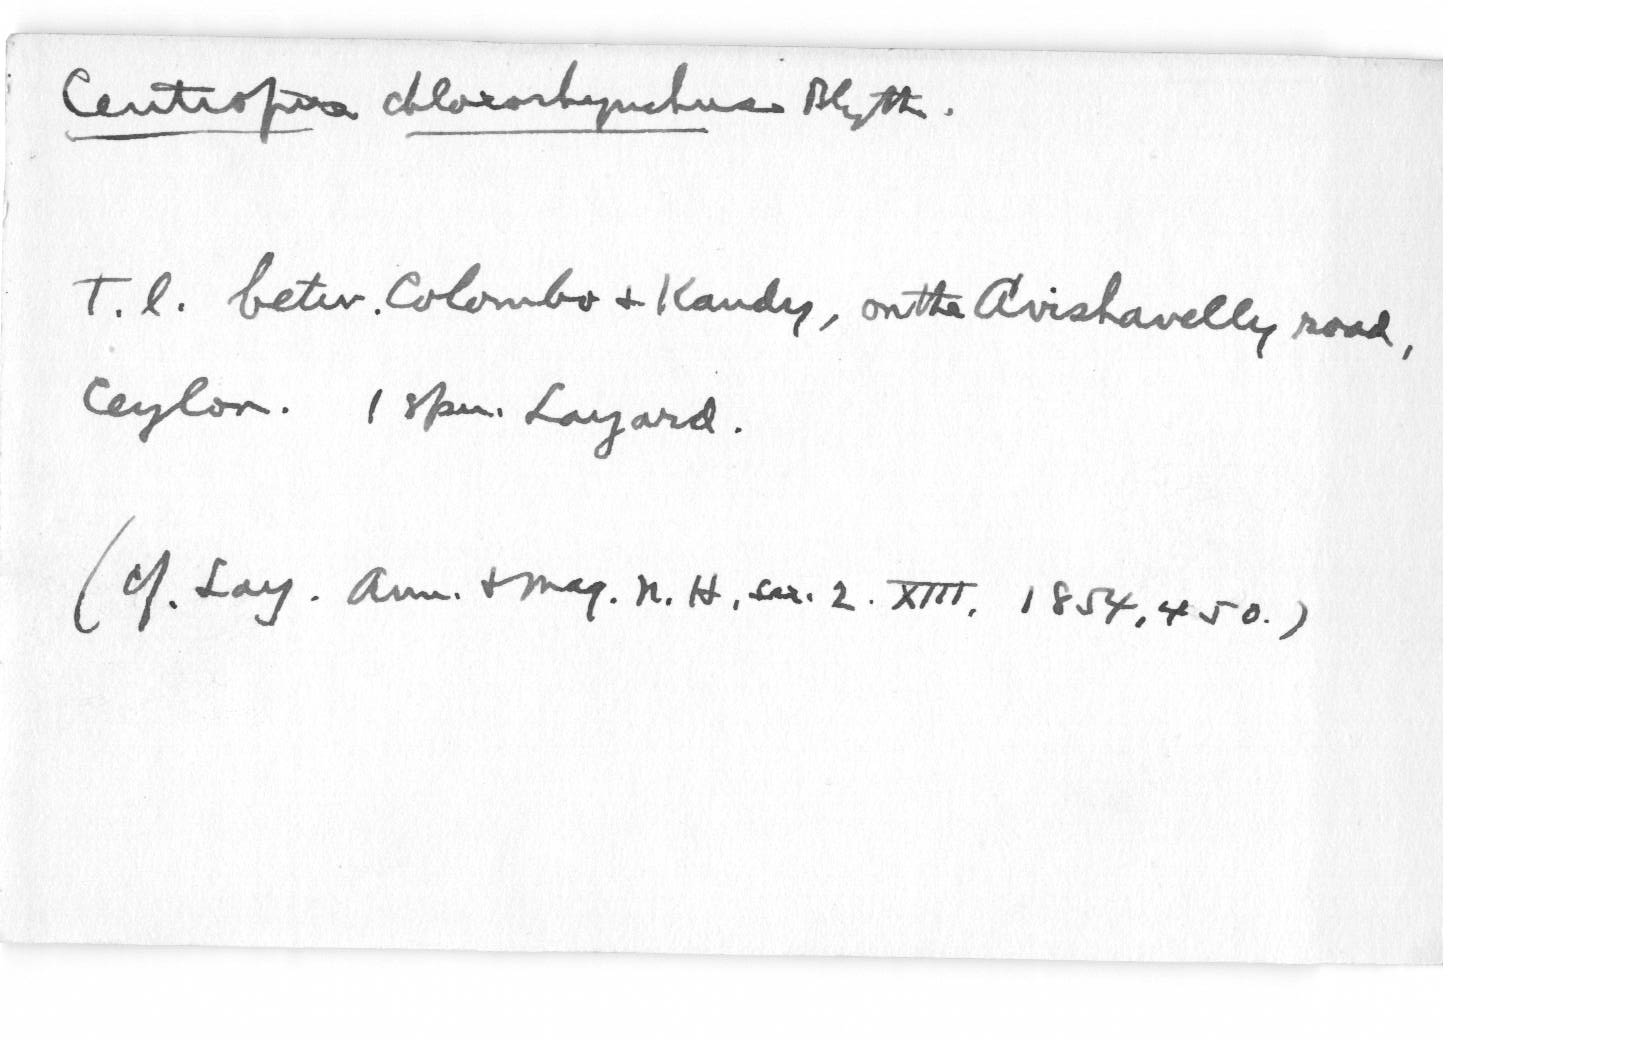 Centropus chlororhynchus Blyth.
T. l. betw. Colombo + Kandy, on the Avishavelly road,
Ceylon. 1 spm. Layard.
(Cf. Lay. Ann. + Mag. N. H., ser. 2. XIII, 1854, 450.)